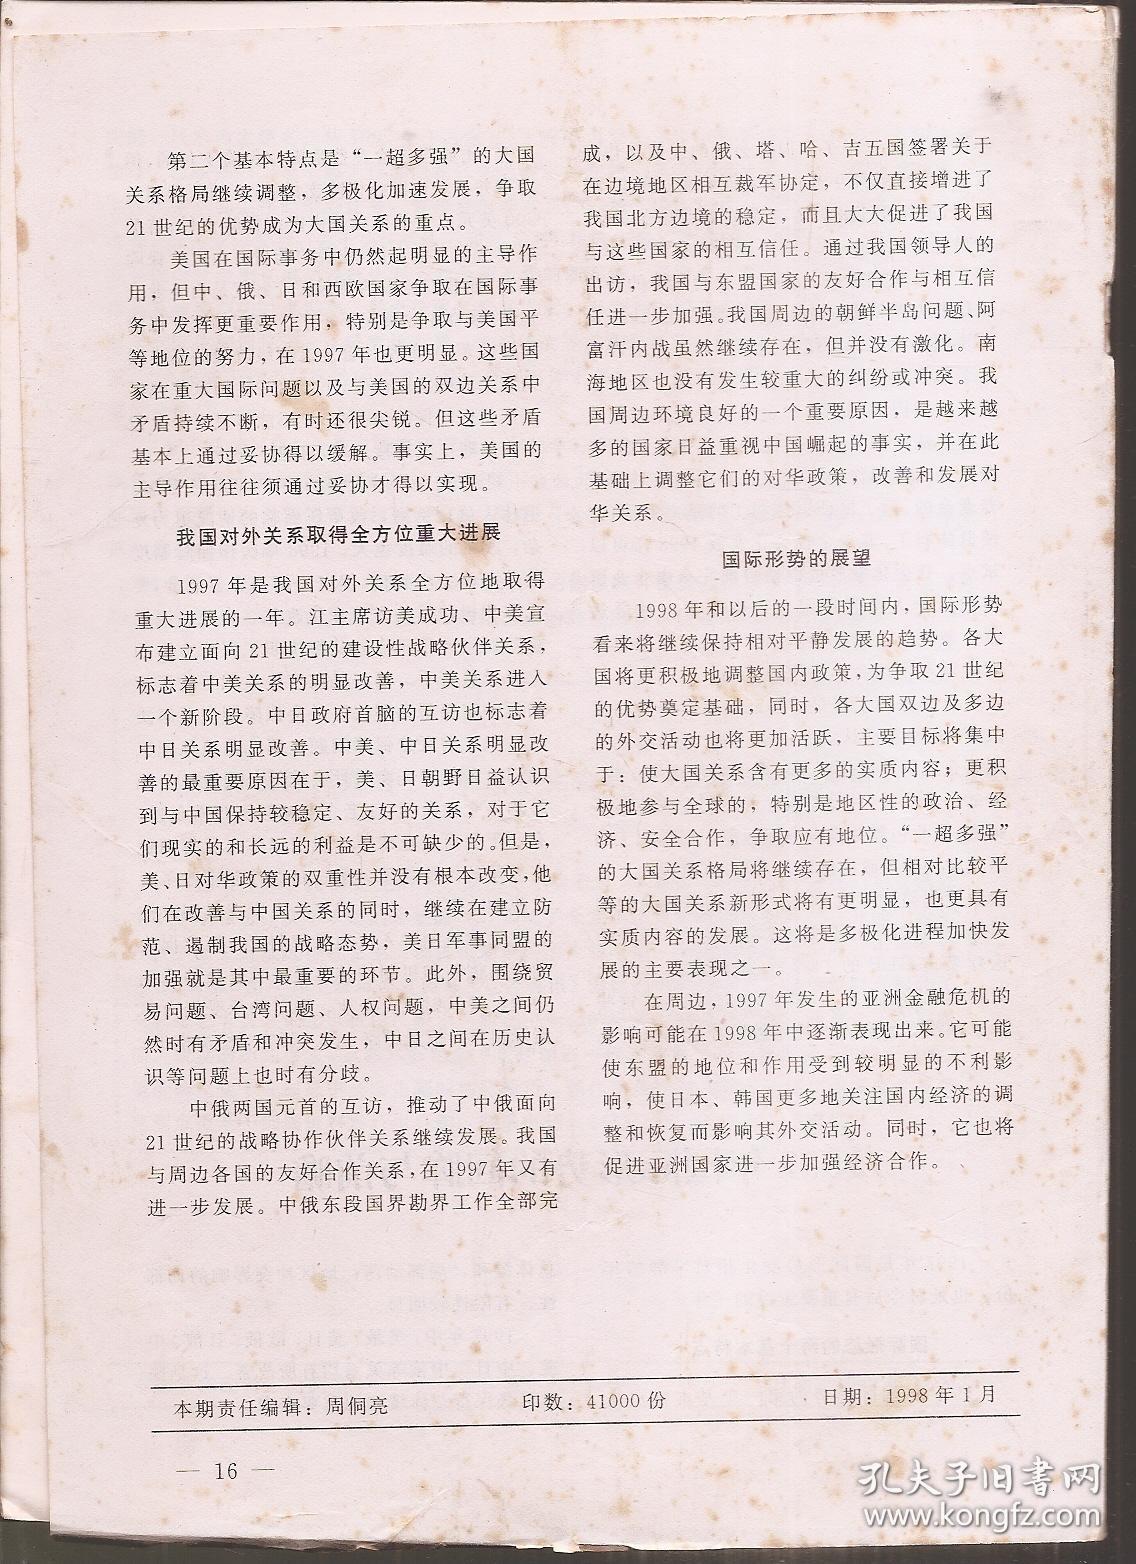 第二个基本特点是“一超多强”的大国
关系格局继续调整，多极化加速发展，争取
21世纪的优势成为大国关系的重点。
美国在国际事务中仍然起明显的主导作
用，但中、俄、日和西欧国家争取在国际事
务中发挥更重要作用，特别是争取与美国平
等地位的努力，在1997年也更明显。这些国
家在重大国际问题以及与美国的双边关系中
矛盾持续不断，有时还很尖锐。但这些矛盾
基本上通过妥协得以缓解。事实上，美国的
主导作用往往须通过妥协才得以实现。
我国对外关系取得全方位重大进展
1997年是我国对外关系全方位地取得
重大进展的一年。江主席访美成功、中美宣
布建立面向21世纪的建设性战略伙伴关系，
标志着中美关系的明显改善，中美关系进入
一个新阶段。中日政府首脑的互访也标志着
中日关系明显改善。中美、中日关系明显改
善的最重要原因在于，美、日朝野日益认识
到与中国保持较稳定、友好的关系，对于它
们现实的和长远的利益是不可缺少的。但是，
美、日对华政策的双重性并没有根本改变，他
们在改善与中国关系的同时，继续在建立防
范、遏制我国的战略态势，美日军事同盟的
加强就是其中最重要的环节。此外，围绕贸
易问题、台湾问题、人权问题，中美之间仍
然时有矛盾和冲突发生，中日之间在历史认
识等问题上也时有分歧。
中俄两国元首的互访，推动了中俄面向
21世纪的战略协作伙伴关系继续发展。我国
与周边各国的友好合作关系，在1997年又有
进一步发展。中俄东段国界勘界工作全部完
成，以及中、俄、塔、哈、吉五国签署关于
在边境地区相互裁军协定，不仅直接增进了
我国北方边境的稳定，而且大大促进了我国
与这些国家的相互信任。通过我国领导人的
出访，我国与东盟国家的友好合作与相互信
任进一步加强。我国周边的朝鲜半岛问题、阿
富汗内战虽然继续存在，但并没有激化。南
海地区也没有发生较重大的纠纷或冲突。我
国周边环境良好的一个重要原因，是越来越
多的国家日益重视中国崛起的事实，并在此
基础上调整它们的对华政策，改善和发展对
华关系。
国际形势的展望
1998年和以后的一段时间内，国际形势
看来将继续保持相对平静发展的趋势。各大
国将更积极地调整国内政策，为争取21世纪
的优势奠定基础，同时，各大国双边及多边
的外交活动也将更加活跃，主要目标将集中
于：使大国关系含有更多的实质内容；更积
极地参与全球的，特别是地区性的政治、经
济、安全合作，争取应有地位。“一超多强”
的大国关系格局将继续存在，但相对比较平
等的大国关系新形式将有更明显，也更具有
实质内容的发展。这将是多极化进程加快发
展的主要表现之一。
在周边，1997年发生的亚洲金融危机的
影响可能在1998年中逐渐表现出来。它可能
使东盟的地位和作用受到较明显的不利影
响，使日本、韩国更多地关注国内经济的调
整和恢复而影响其外交活动。同时，它也将
促进亚洲国家进一步加强经济合作。
本期责任编辑：周侗亮 印数：41000份 日期：1998年1月
— 16 —
孔夫子旧书网
www.kongfz.com